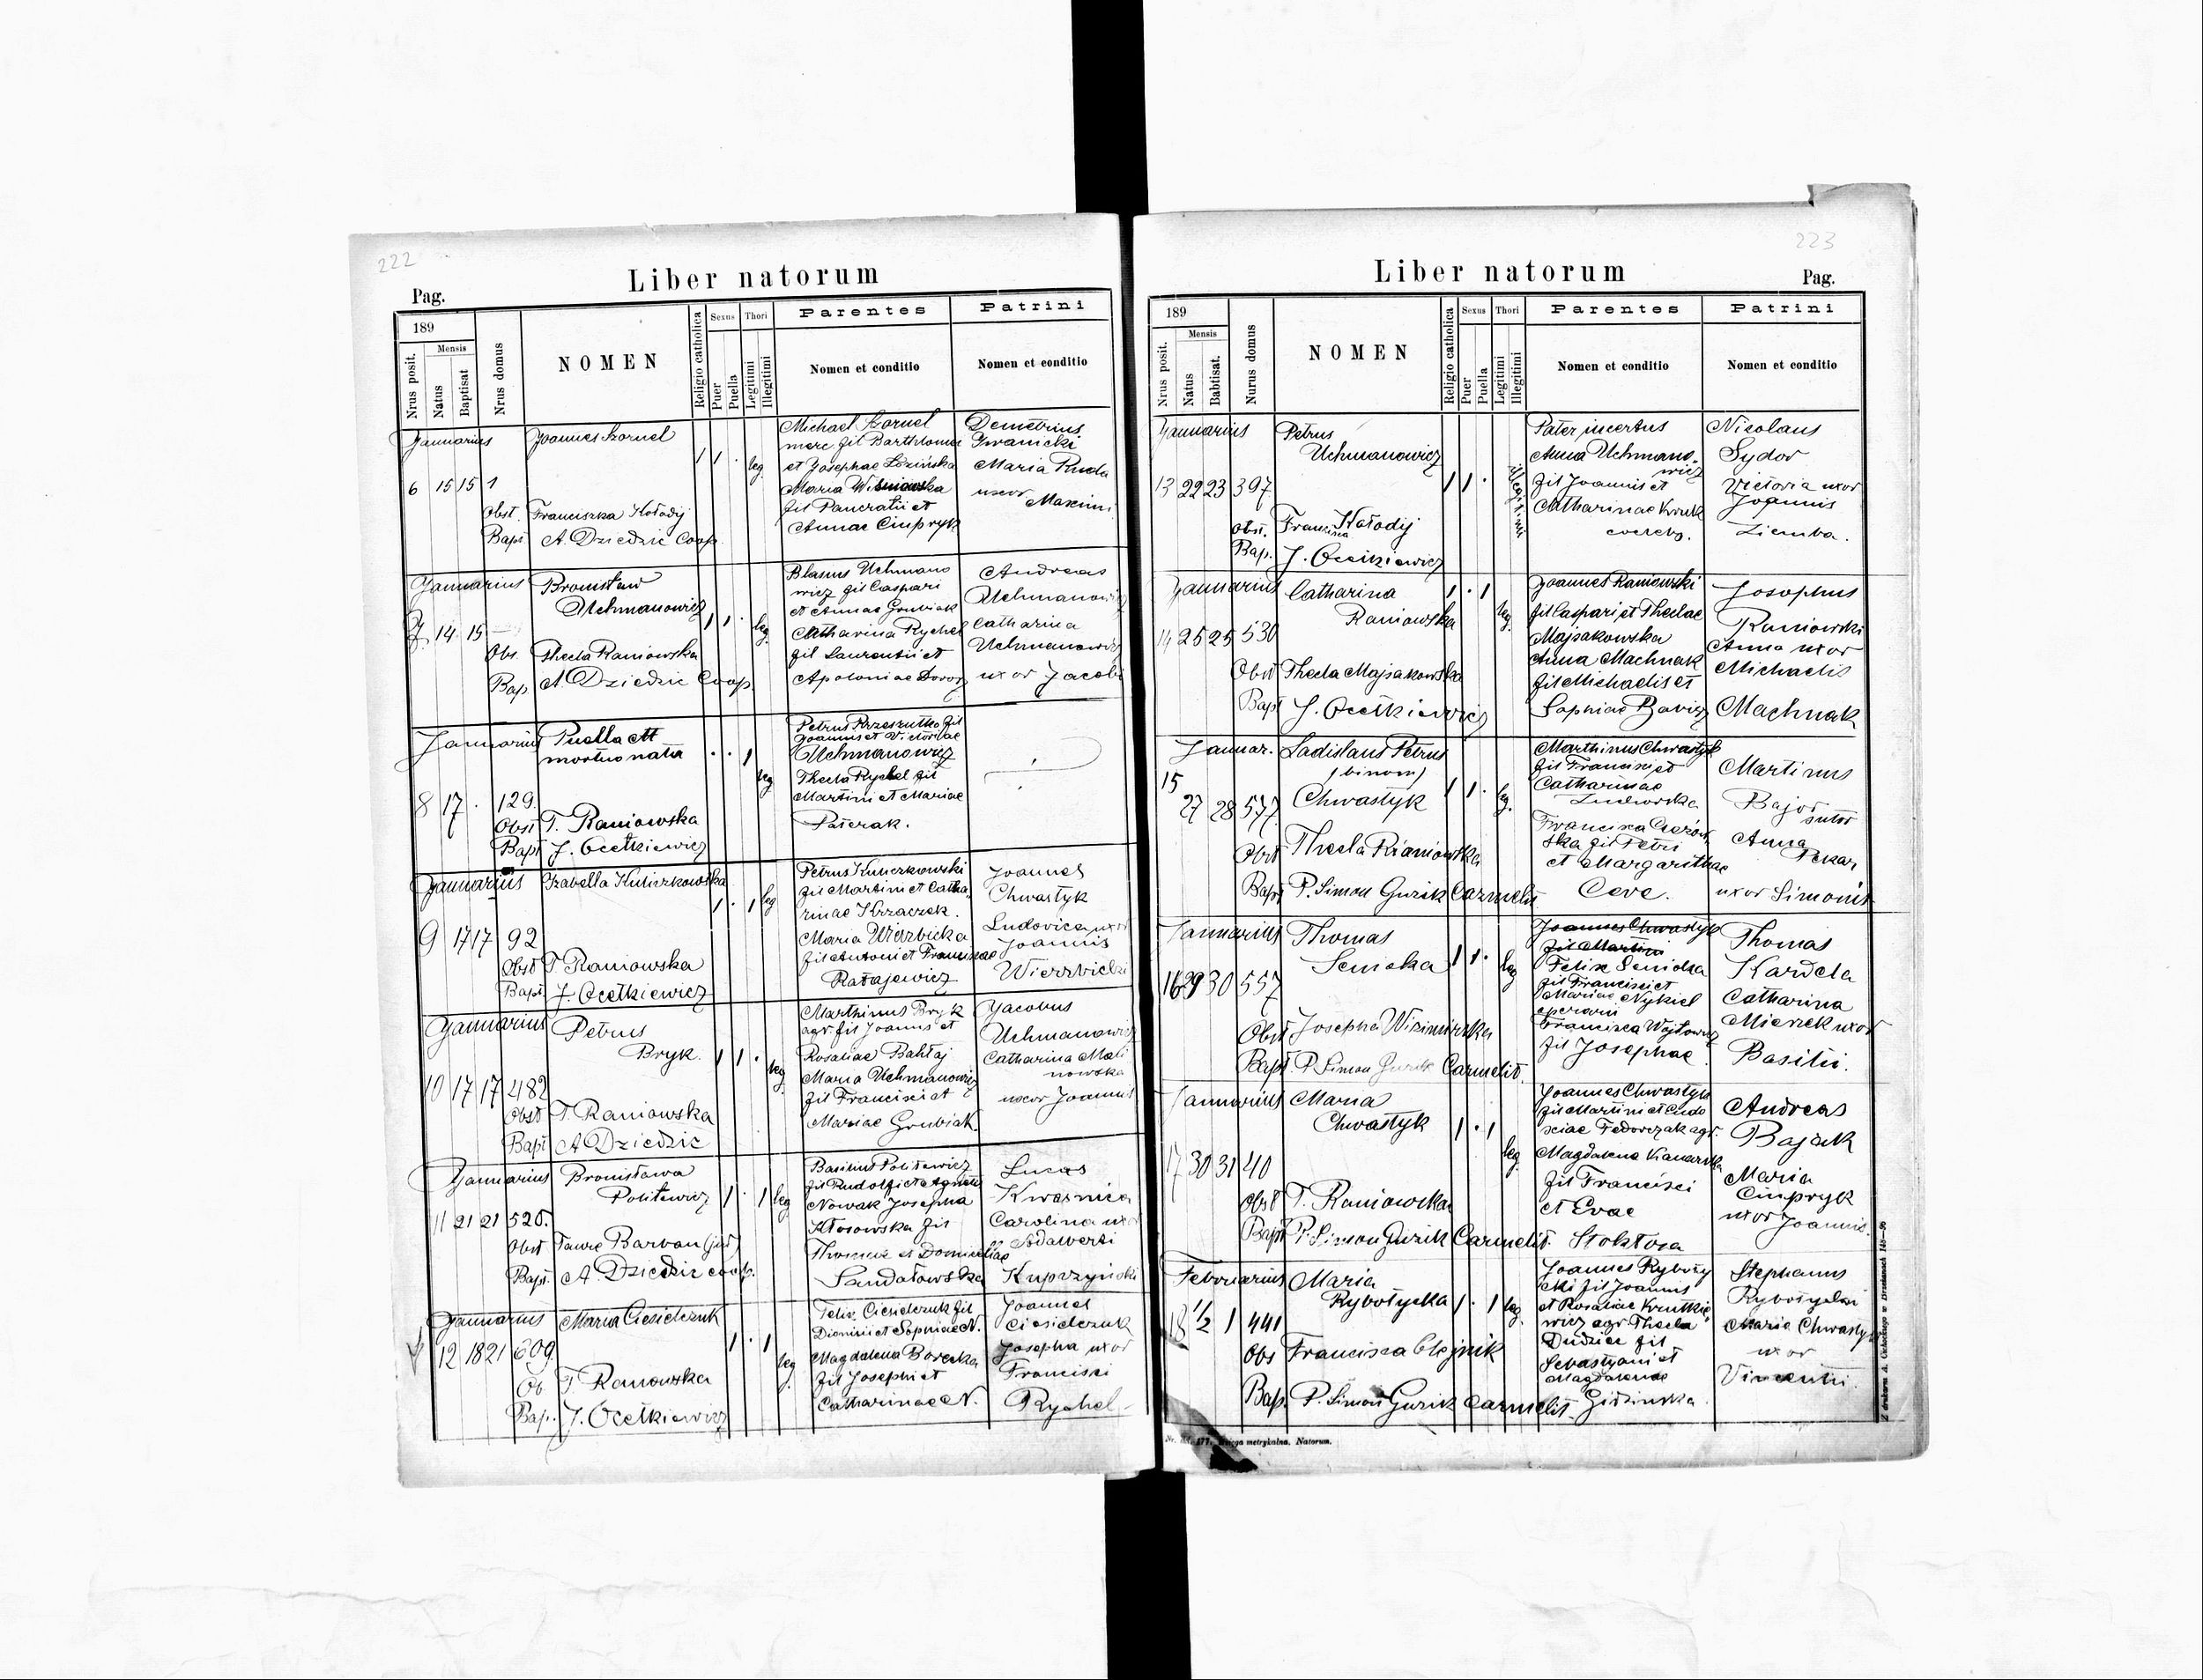 222
Liber natorum
Pag.
189
Mensis
Nrus posit.
Natus
Baptisat
Nrus domus
NOMEN
Religio catholica
Sexus
Puer
Puella
Thori
Legitimi
Illegitimi
Parentes
Nomen et conditio
Patrini
Nomen et conditio
Januarius
6 15 15 1
Joannes Kornel
Obst. Franciszka Kołodij
Bapt A. Dziedzic Coop.
1 1 . leg.
Michael Kornel
merc. fil Bartholomei
et Josephae Łozińska
Maria Wiśniowska
fil Pancratii et
Annae Ciupryk
Demetrius
Iwanicki
Maria Ruda
uxor
Maximi
Januarius
7 14 15
Bronisław
Uchmanowicz
Obs. Thecla Raniowska
Bap. A. Dziedzic Coop.
1 1 . leg.
Blasius Uchmano
wicz fil Caspari
et Annae Grubiak
Catharina Rychel
fil Laurentii et
Apoloniae
Andreas
Uchmanowicz
Catharina
Uchmanowicz
uxor Jacobi
Januarius
8 17 . 129.
Puella
mortuo nata
Obst T. Raniowska
Bapt J. Ocetkiewicz
. . 1 leg
Petrus Przeszutko fil
Joannis et Victoriae
Uchmanowicz
Thecla Rychel fil
Martini et Mariae
Paserak.
Januarius
9 17 17 92
Izabella Kuliszkowska
Obst T. Raniowska
Bapt. J. Ocetkiewicz
1 . 1 leg
Petrus
fil Martini et Catha
rinae Krzaczek.
Maria Wierzbicka
fil Antoni et Franciscae
Ratajewicz
Joannes
Chwastyk
Ludovica uxor
Joannis
Wierzbicki
Januarius
10 17 17 482
Petrus
Bryk.
Obst T. Raniowska
Bapt A Dziedzic
1 1 . leg.
Marthinus Bryk
agr. fil Joannis et
Rosaliae Bahtaj
Maria Uchmanowicz
fil Francisci et
Mariae Grubiak
Jacobus
Uchmanowicz
Catharina Mali
nowska
uxor Joannis
Januarius
11 21 21 520.
Bronisława
Politewicz
Bapt. A. Dziedzic coop.
1 . 1 leg
Basilius Politewicz
fil Rudolfi et Agnetis
Nowak Josepha
Kłosowska fil
Thomae et Domicellae
Sandałowska
Lucas
Kwasnica
Carolina uxor
Kuprzyński
Januarius
12 18 21 609.
Maria Ciesielczuk
Ob. T. Raniowska
Bap. J. Ocetkiewicz
1 . 1 leg.
Felix Ciesielczuk fil
Dionisii et Sophiae N.
Magdalena Borecka
fil Josephi et
Catharinae N.
Joannes
Ciesielczuk
Josepha uxor
Francisci
Rychel
223
Liber natorum
Pag.
189
Mensis
Nrus posit.
Natus
Babtisat.
Nurus domus
NOMEN
Religio catholica
Sexus
Puer
Puella
Thori
Legitimi
Illegitimi
Parentes
Nomen et conditio
Patrini
Nomen et conditio
Januarius
13 22 23 397
Petrus
Uchmanowicz
Obst. Francisca Kołodij
Bap. J. Ocetkiewicz
1 1 . Illegitimi
Pater incertus
Anna Uchmano-
wicz
fil Joannis et
Catharinae Kruk
Nicolaus
Sydor
Victoria uxor
Joannis
Ziemba.
Januarius
14 25 25 530
Catharina
Raniowska
Obst Thecla Majsakowska
Bapt J. Ocetkiewicz
1 . 1 leg.
Joannes Raniowski
fil Caspari et Theclae
Majsakowska
Anna Machnak
fil Michaelis et
Sophiae
Josephus
Raniowski
Anna uxor
Michaelis
Machnak
Januar.
15 27 28 577
Ladislaus Petrus
(binom)
Chwastyk
Obst Thecla Raniowska
Bapt P. Simon Gurik Carmelit.
1 1 . leg.
Marthinus Chwastyk
fil Francisci et
Catharinae
Francisca
ska fil Petri
et Margarithae
Ceve.
Martinus
Bajor
sutor
Anna
Pekar
uxor Simonis
Januarius
16 29 30 557
Thomas
Senicka
Obst Josepha
Bapt. P. Simon Gurik Carmelit.
1 1 . leg
Joannes Chwastyk
fil Martini
Felix Senicka
fil Francisci et
Mariae Nykiel
operarii
Francisca Wojtowicz
fil Josephae.
Thomas
Kardela
Catharina
Mierzek uxor
Basilii.
Januarius
17 30 31 40
Maria
Chwastyk
Obst T. Raniowska
Bapt P. Simon Gurik Carmelit.
1 . 1 leg.
Joannes Chwastyk
fil Martini et Ludo
viciae Fedorczak agr.
Magdalena
fil Francisci
et Evae
Stoktosa
Andreas
Bajak
Maria
Ciupryk
uxor Joannis.
Februarius
18 1/2 1 441
Maria
Rybotycka
Obs Francisca Olejnik
Bap. P. Simon Gurik Carmelit.
1 . 1 leg.
Joannes Ryboty
cki fil Joannis
et Rosaliae Krutkie
wicz agr. Thecla
Dudzic fil
Sebastyani et
Magdalenae
Gidzinska
Stephanus
Rybotycki
Maria Chwastyk
uxor
Vincentii.
Księga metrykalna. Natorum.
Z drukarni A. Cichockiego w Brzeżanach 145—96